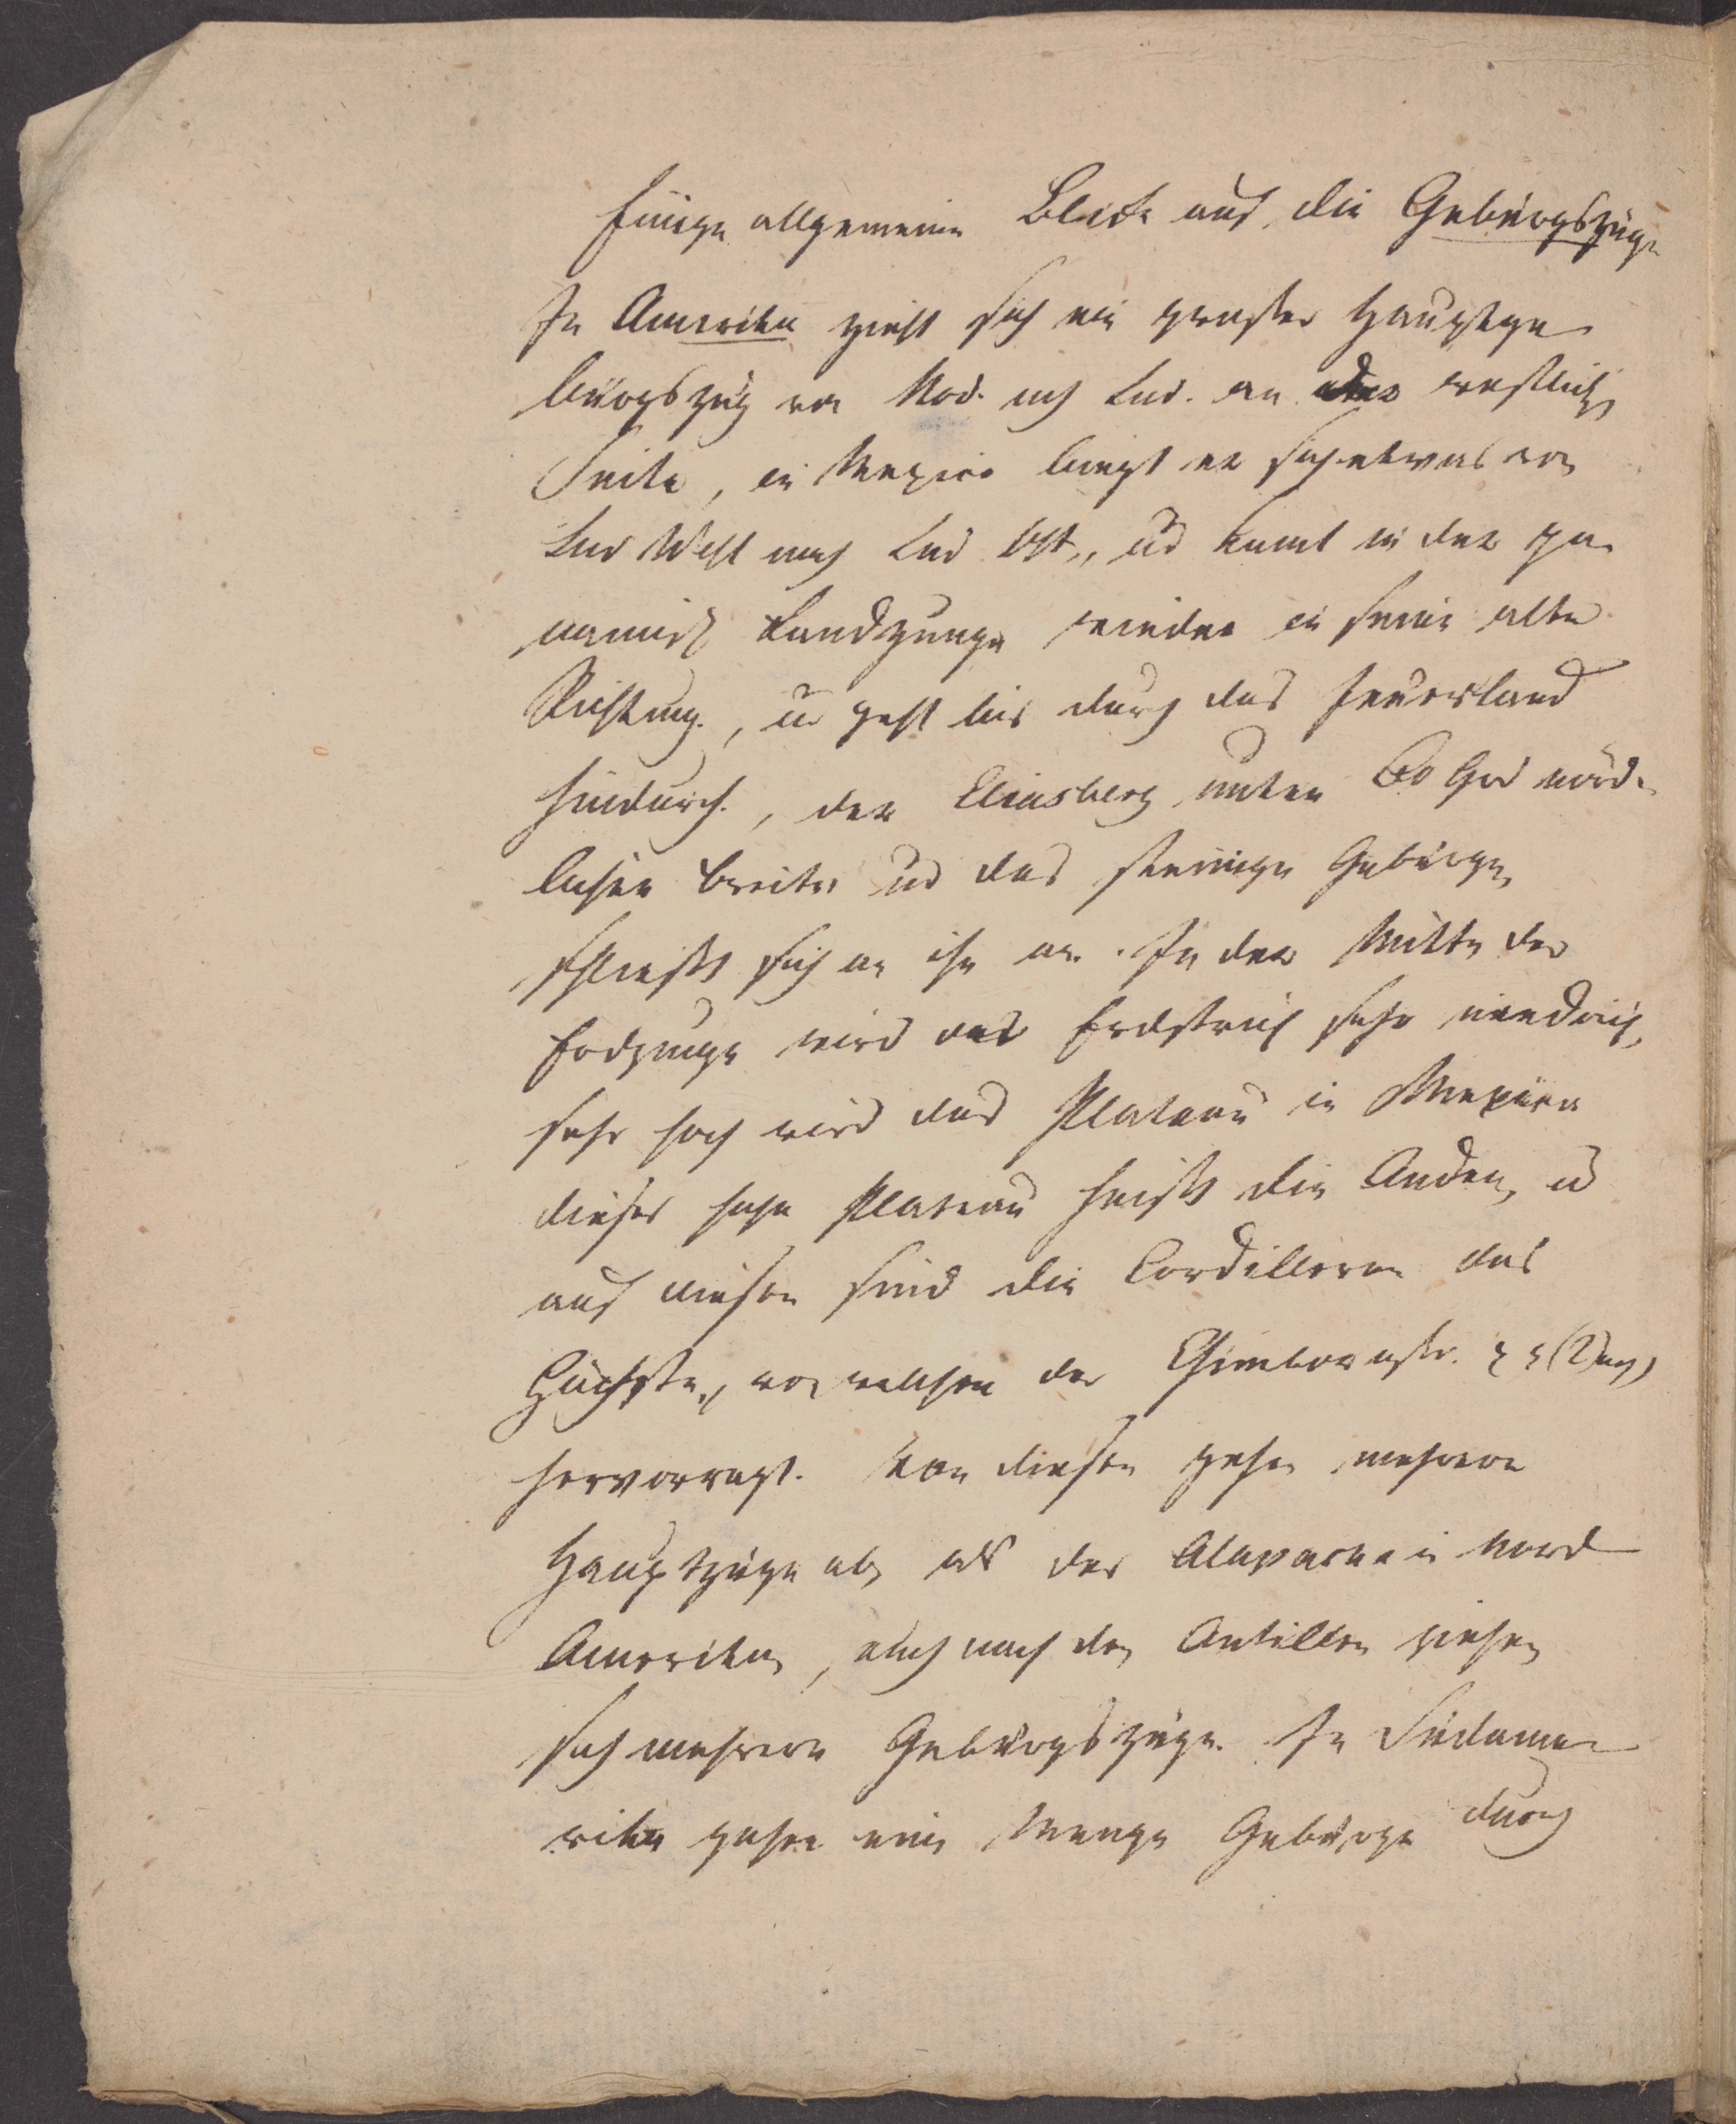 Einige allgemeine Blicke auf die Gebürgszüge
In Amerika zieht sich ein großer Hauptge
bürgszug von Nod. nach Sud. an der westlich
Seite, in Mexico biegt er sich etwas von
Sud West nach Sud Ost, und kömt in der pa
namisch Landzunge wieder in seine alte
Richtung, und geht bis durch das Feuerland
hindurch, der Eliasberg unter 60 Grd nörd
licher Breite und das steinige Gebürge
schließt sich an ihn an. In der Mitte der
Erdzunge wird das Erdstrich sehr niedrich,
sehr hoch wird das Plateau in Mexico
dieses hohe Plateau heißt die Anden, und
auf diesen sind die Cordilleren das
Höchste, von welchen der Chimborasso
hervorragt. Von diesen gehen mehrere
Hauptzüge ab, als der Alapachen in Nord
Amerika, auch nach den Antillen ziehen
sich mehrere Gebürgszüge. In Südame
rika gehen eine Menge Gebürge durch